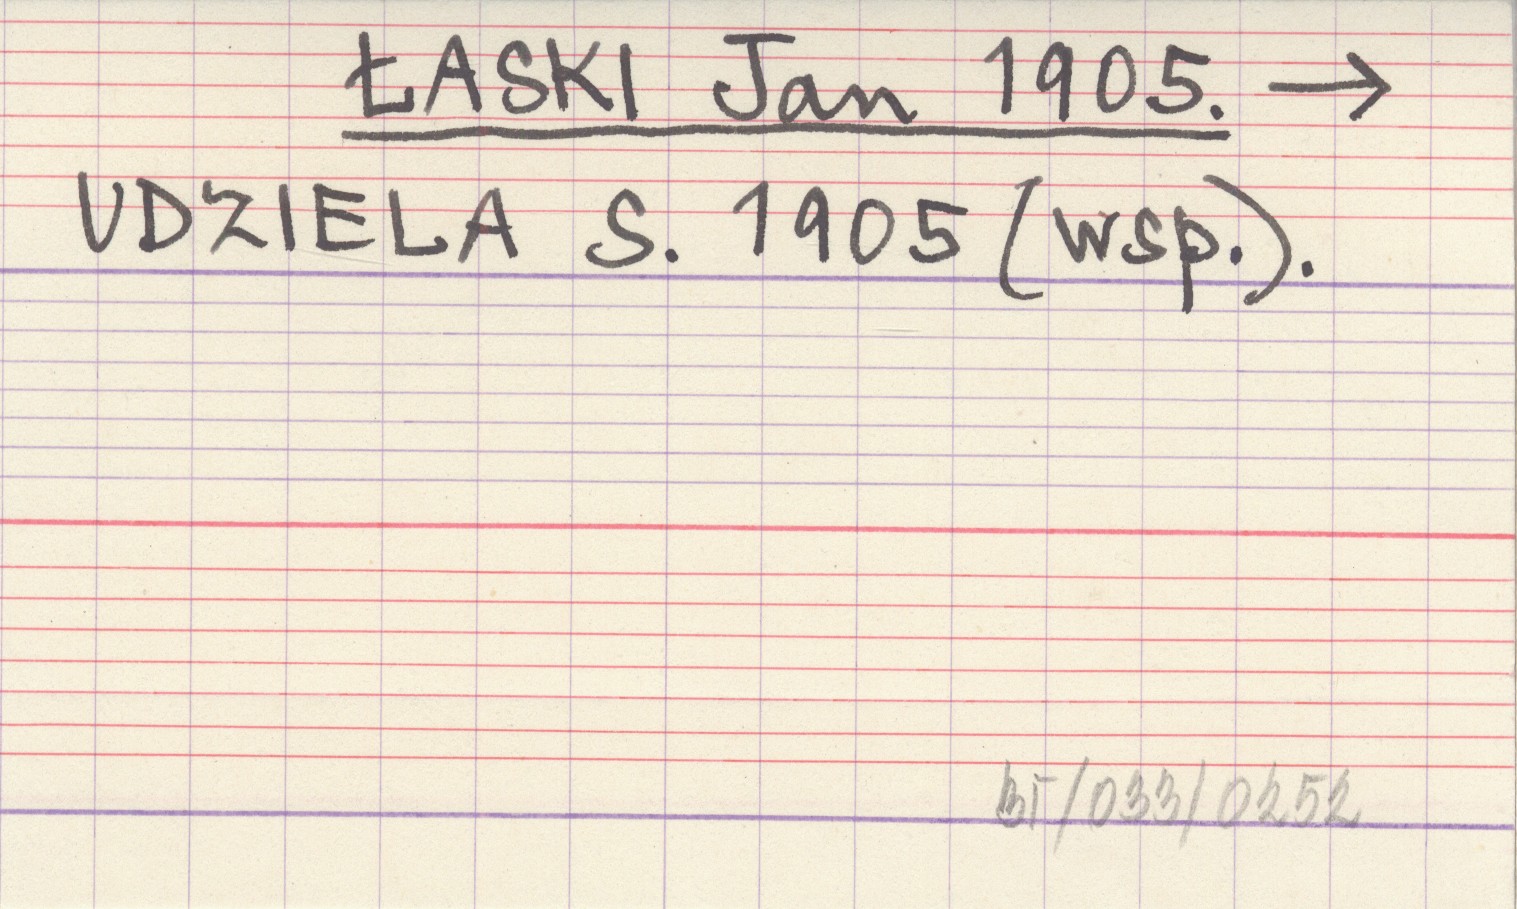 ŁASKI Jan 1905. →
UDZIELA S. 1905 (wsp.).
BI/033/0252